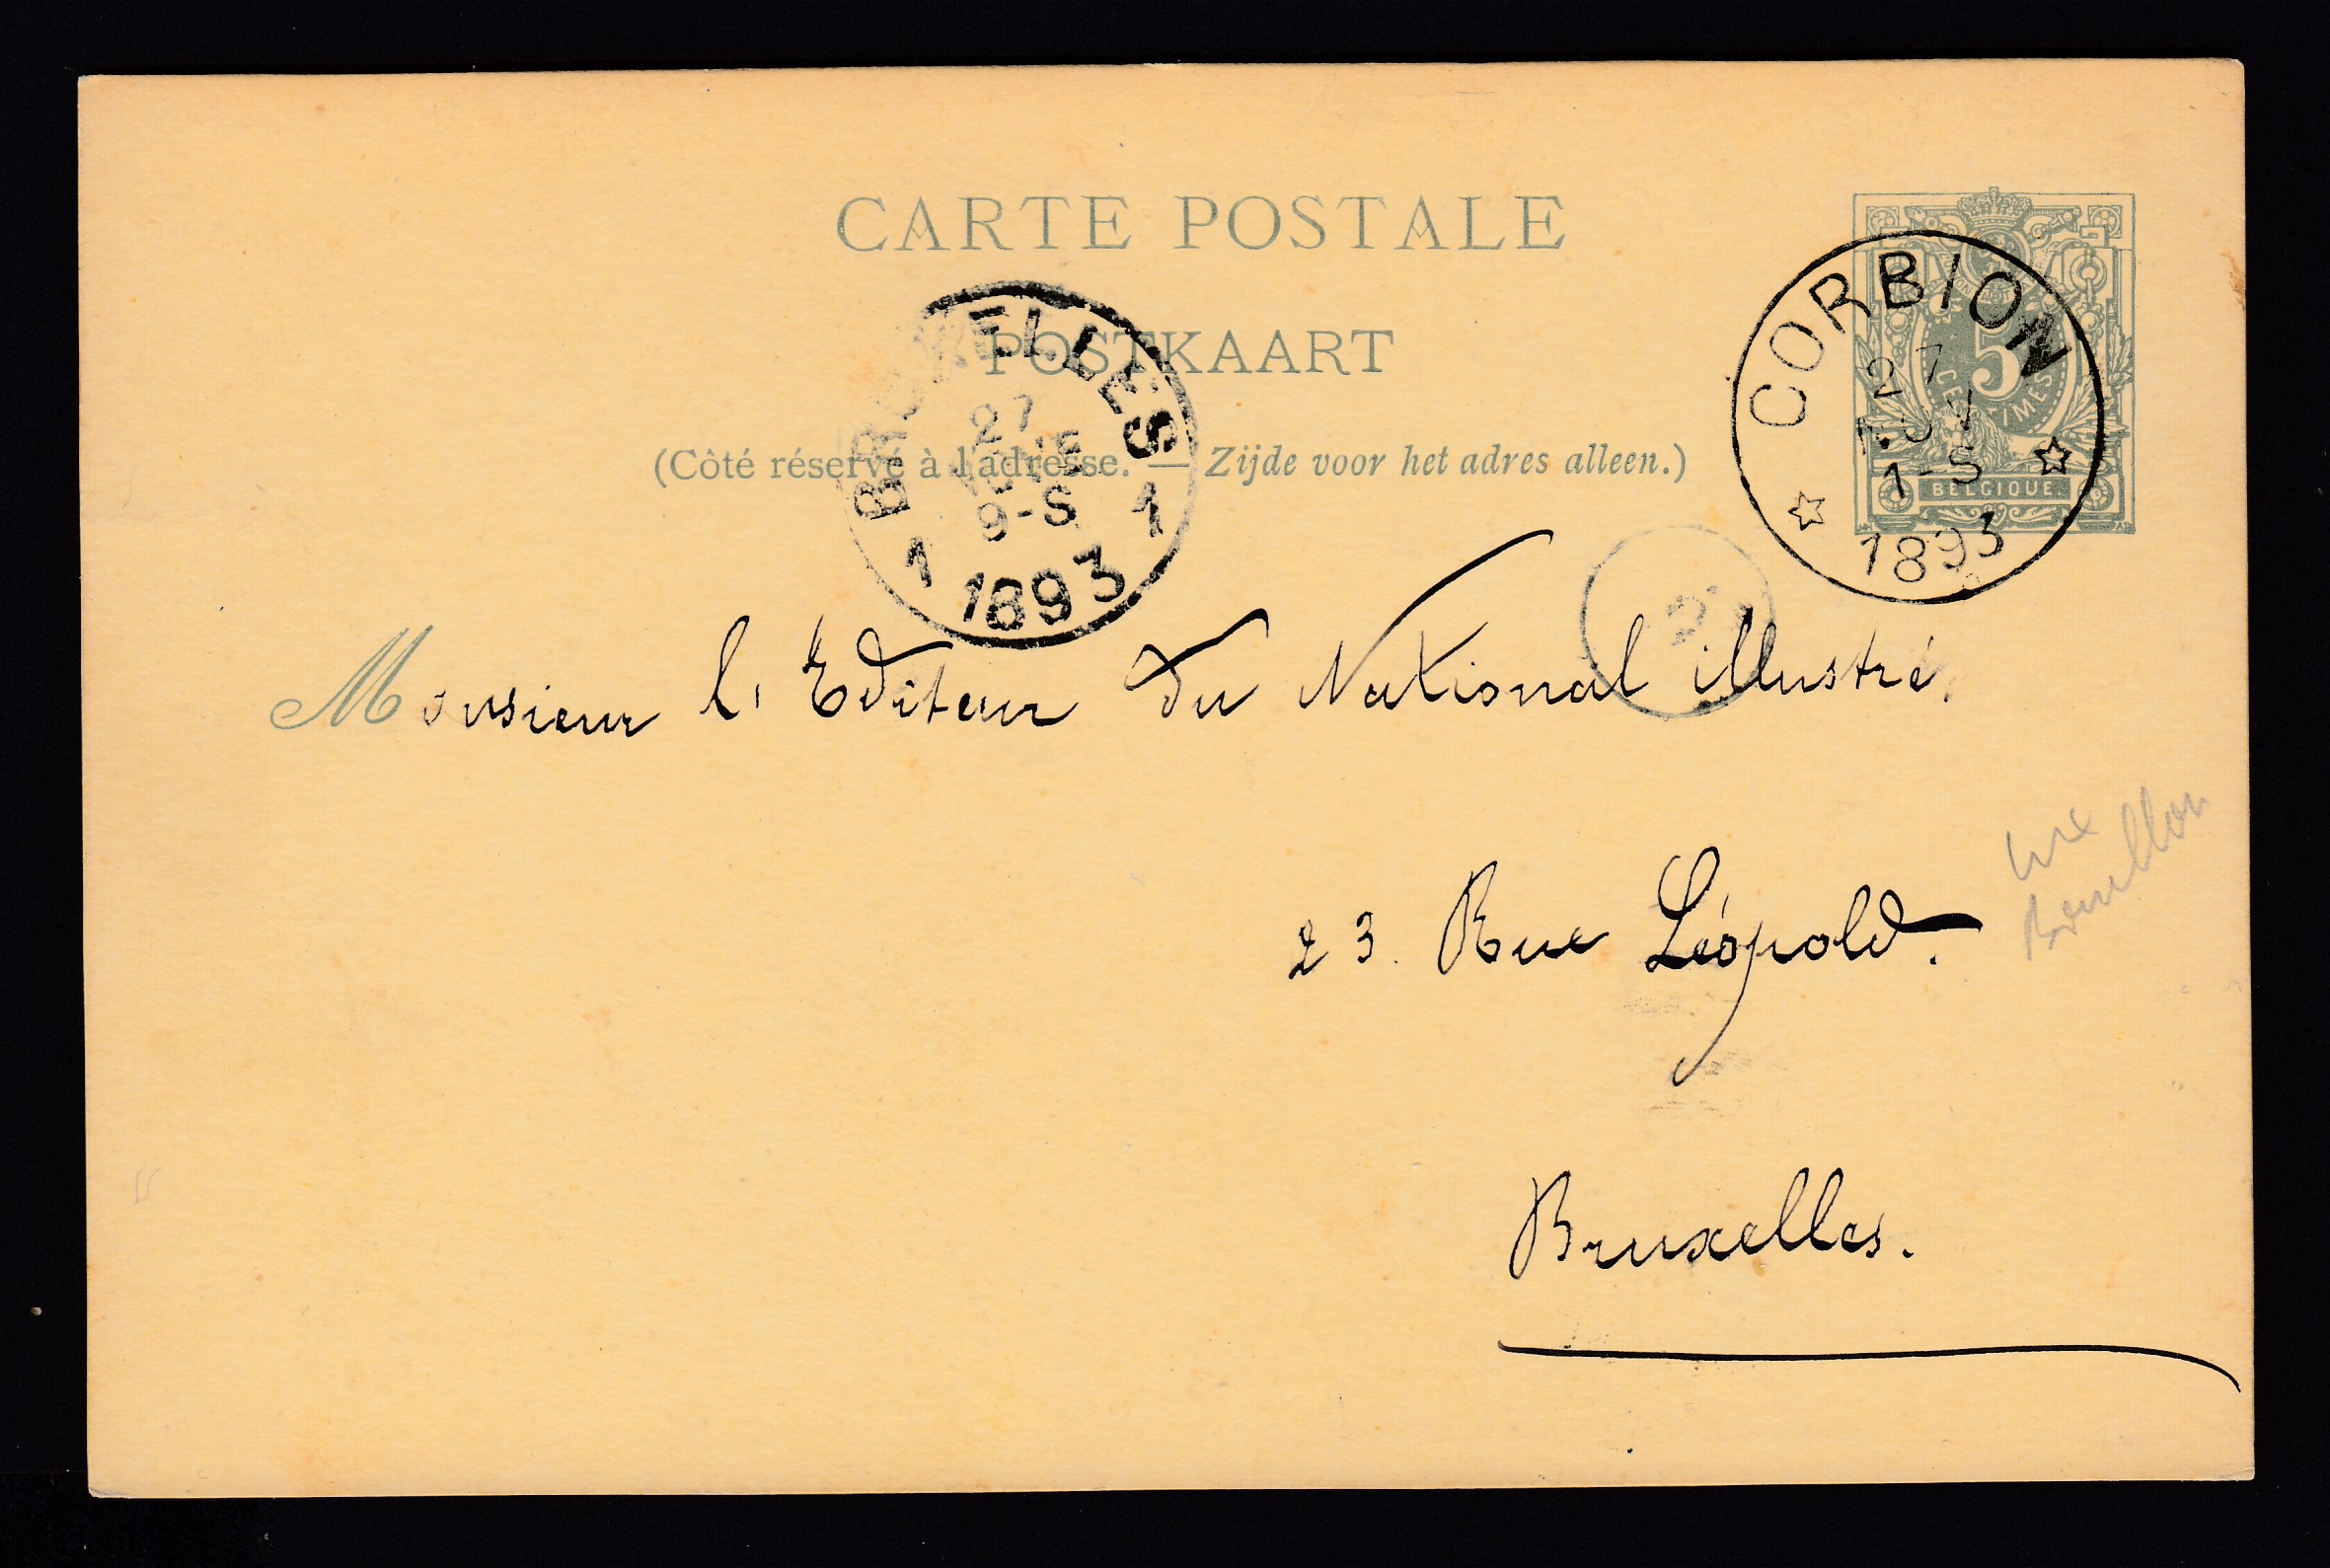 CARTE POSTALE
POSTKAART
(Côté réservé à l'adresse. — Zijde voor het adres alleen.)
5
CENTIMES
BELGIQUE
CORBION
27
1-S
1893
BRUXELLES
27
9-S
1 1893 1
Monsieur l'Editeur du National illustré.
23. Rue Léopold.
Bruxelles.
Bouillon